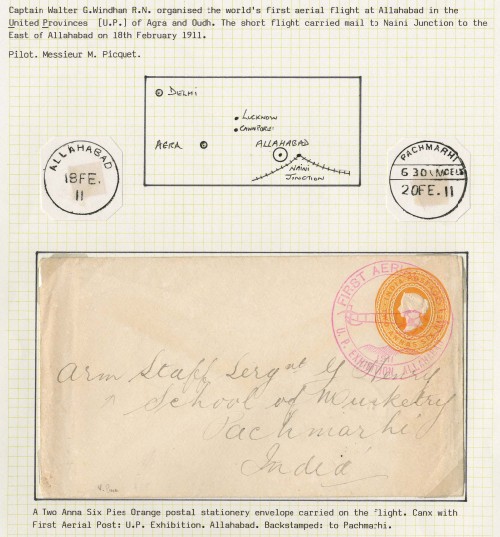 Captain Walter G.Windham R.N. organised the world's first aerial flight at Allahabad in the
United Provinces [U.P.] of Agra and Oudh. The short flight carried mail to Naini Junction to the
East of Allahabad on 18th February 1911.
Pilot. Messieur M. Picquet.
DELHI
LUCKNOW
CAWNPORE
AGRA
ALLAHABAD
NAINI
JUNCTION
ALLAHABAD
18 FE.
11
PACHMARHI
6 30
20 FE. 11
FIRST AERIAL
1911
U.P. EXHIBITION, ALLAHABAD
Arm Staff Sergnt G Henry
School of Musketry
Pachmarhi
India
A Two Anna Six Pies Orange postal stationery envelope carried on the flight. Canx with
First Aerial Post: U.P. Exhibition. Allahabad. Backstamped: to Pachmarhi.